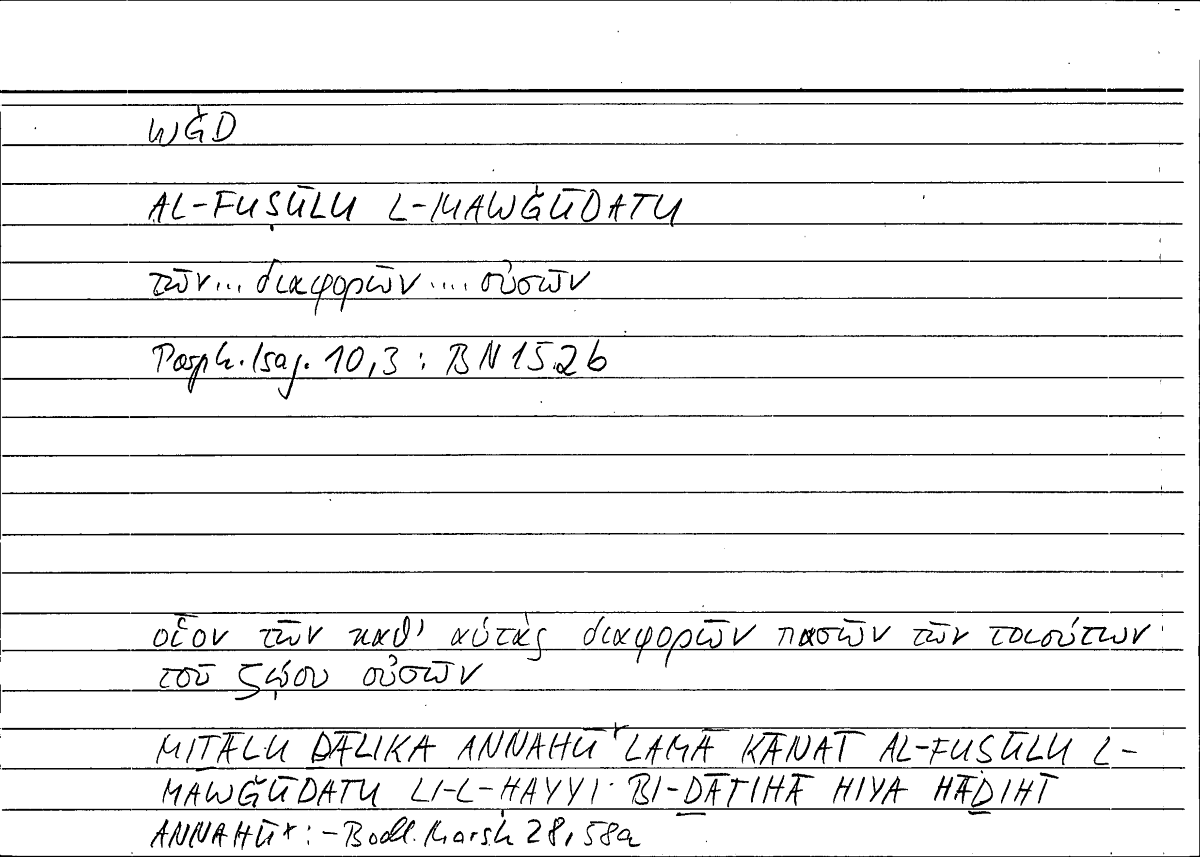 WǦD
AL-FUṢŪLU L-MAWǦŪDATU
τῶν... διαφορῶν.... οὐσῶν
Porph. Isag. 10,3 : BN 152b
οἷον τῶν καθ' αὑτὰς διαφορῶν πασῶν τῶν τοιούτων
τοῦ ζῴου οὐσῶν
MIṮĀLU ḎĀLIKA ANNAHŪ + LAMĀ KĀNAT AL-FUṢŪLU L-
MAWǦŪDATU LI-L-ḤAYYI BI-ḎĀTIHĀ HIYA HĀḎIHĪ
ANNAHŪ+ : - Bodl. Marsh 28, 58a